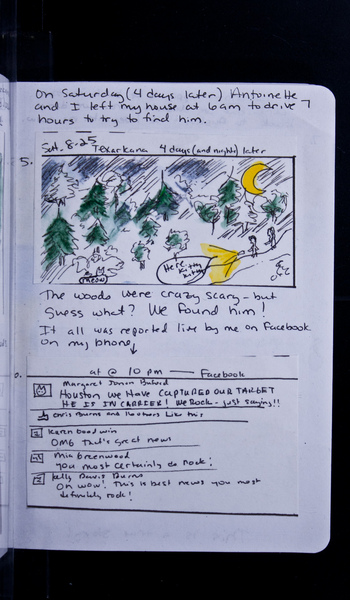 On Saturday (4 days later) Antoinette
and I left my house at 6am to drive 7
hours to try to find him.
Sat. 8.25 Texarkana 4 days (and nights) later
5.
Here kitty kitty
MEOW
The woods were crazy scary - but
guess what? We found him!
It all was reported live by me on Facebook
on my phone
at @ 10 pm — Facebook
Margaret
Houston we have CAPTURED OUR TARGET
HE IS IN CARRIER! We Rock - just saying!!
Chris Burns and others like this
Karen Goodwin
OMG That's great news
Mia Greenwood
you most certainly do rock!
Kelly Davis Burns
Oh wow! This is best news you most
definitely rock!